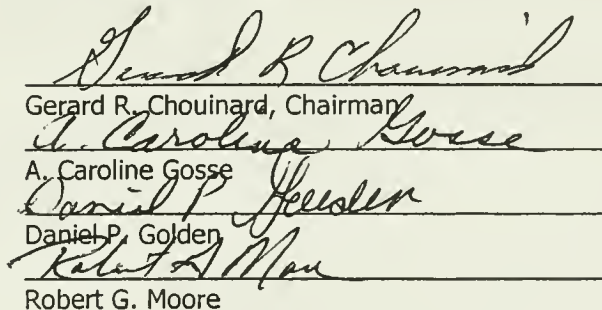 Gerard R Chouinard
Gerard R. Chouinard, Chairman
A. Caroline Gosse
A. Caroline Gosse
Daniel P. Golden
Daniel P. Golden
Robert G Moore
Robert G. Moore